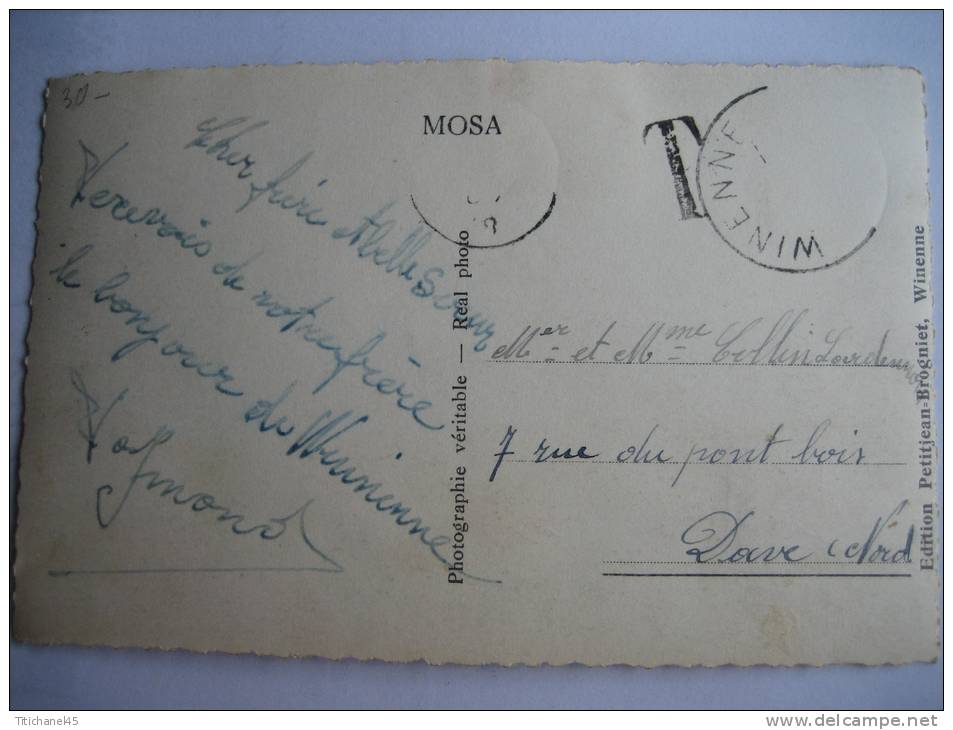 30 -
MOSA
T
WINENNE
Cher frère et belle Soeur
Recevois de notre frère
le bonjour de Wininenne
Raymond
Photographie véritable — Real photo
Mer et Mme Collin
7 rue du pont bois
Dave (Nord
Edition Petitjean-Brogniet, Winenne
Ttichane45
www.delcampe.net